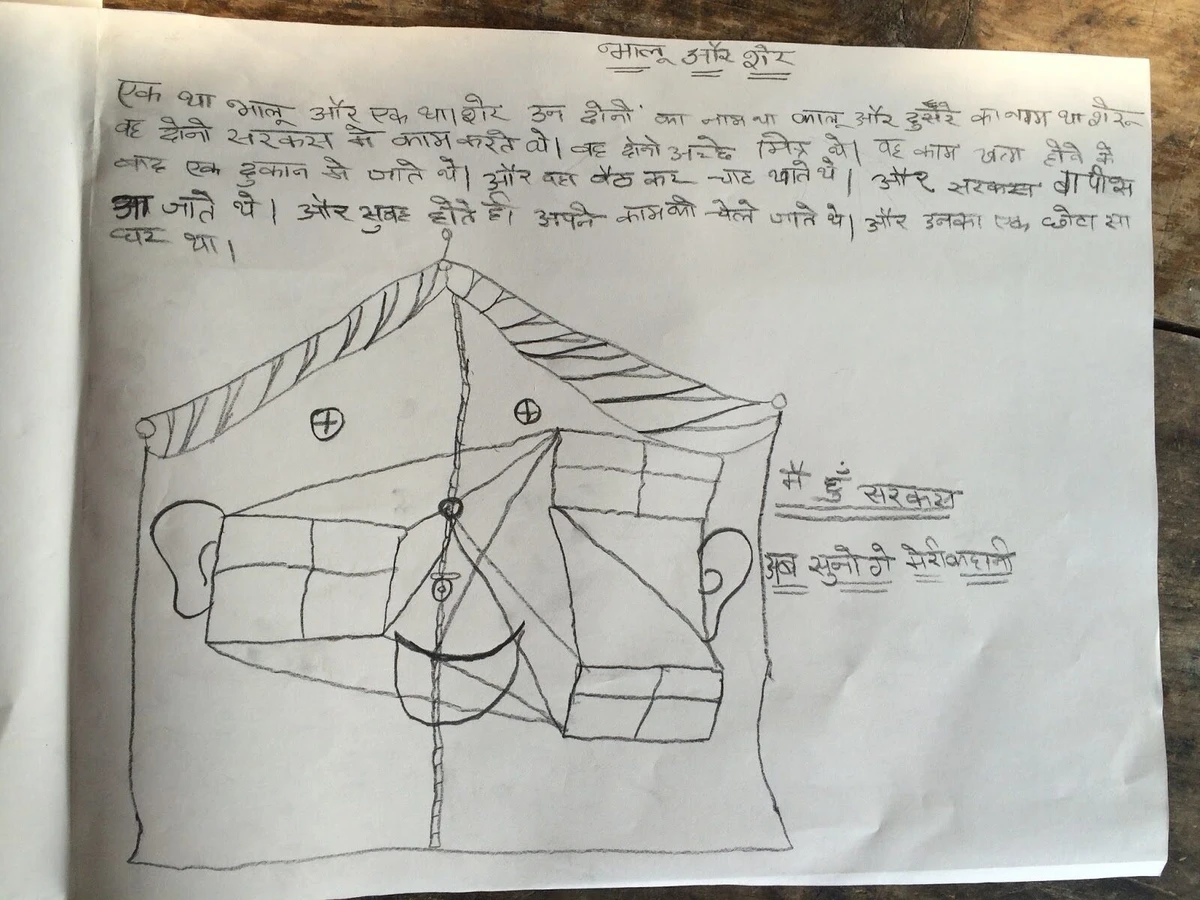 भालू और शेर
एक था भालू और एक था। शेर उन दोनों का नाम था कालू और दुसरे का नाम था शेरू
वह दोनो सरकस मे काम करते थे। वह दोनो अच्छे मित्र थे। वह काम खत्म होने के
बाद एक दुकान मे जाते थे। और वहा बैठ कर चाट खाते थे। और सरकस वापीस
आ जाते थे। और सुबह होते ही अपने काम को चले जाते थे। और उनका एक छोटा सा
घर था।
मैं हुं सरकस
अब सुनोगे मेरी कहानी